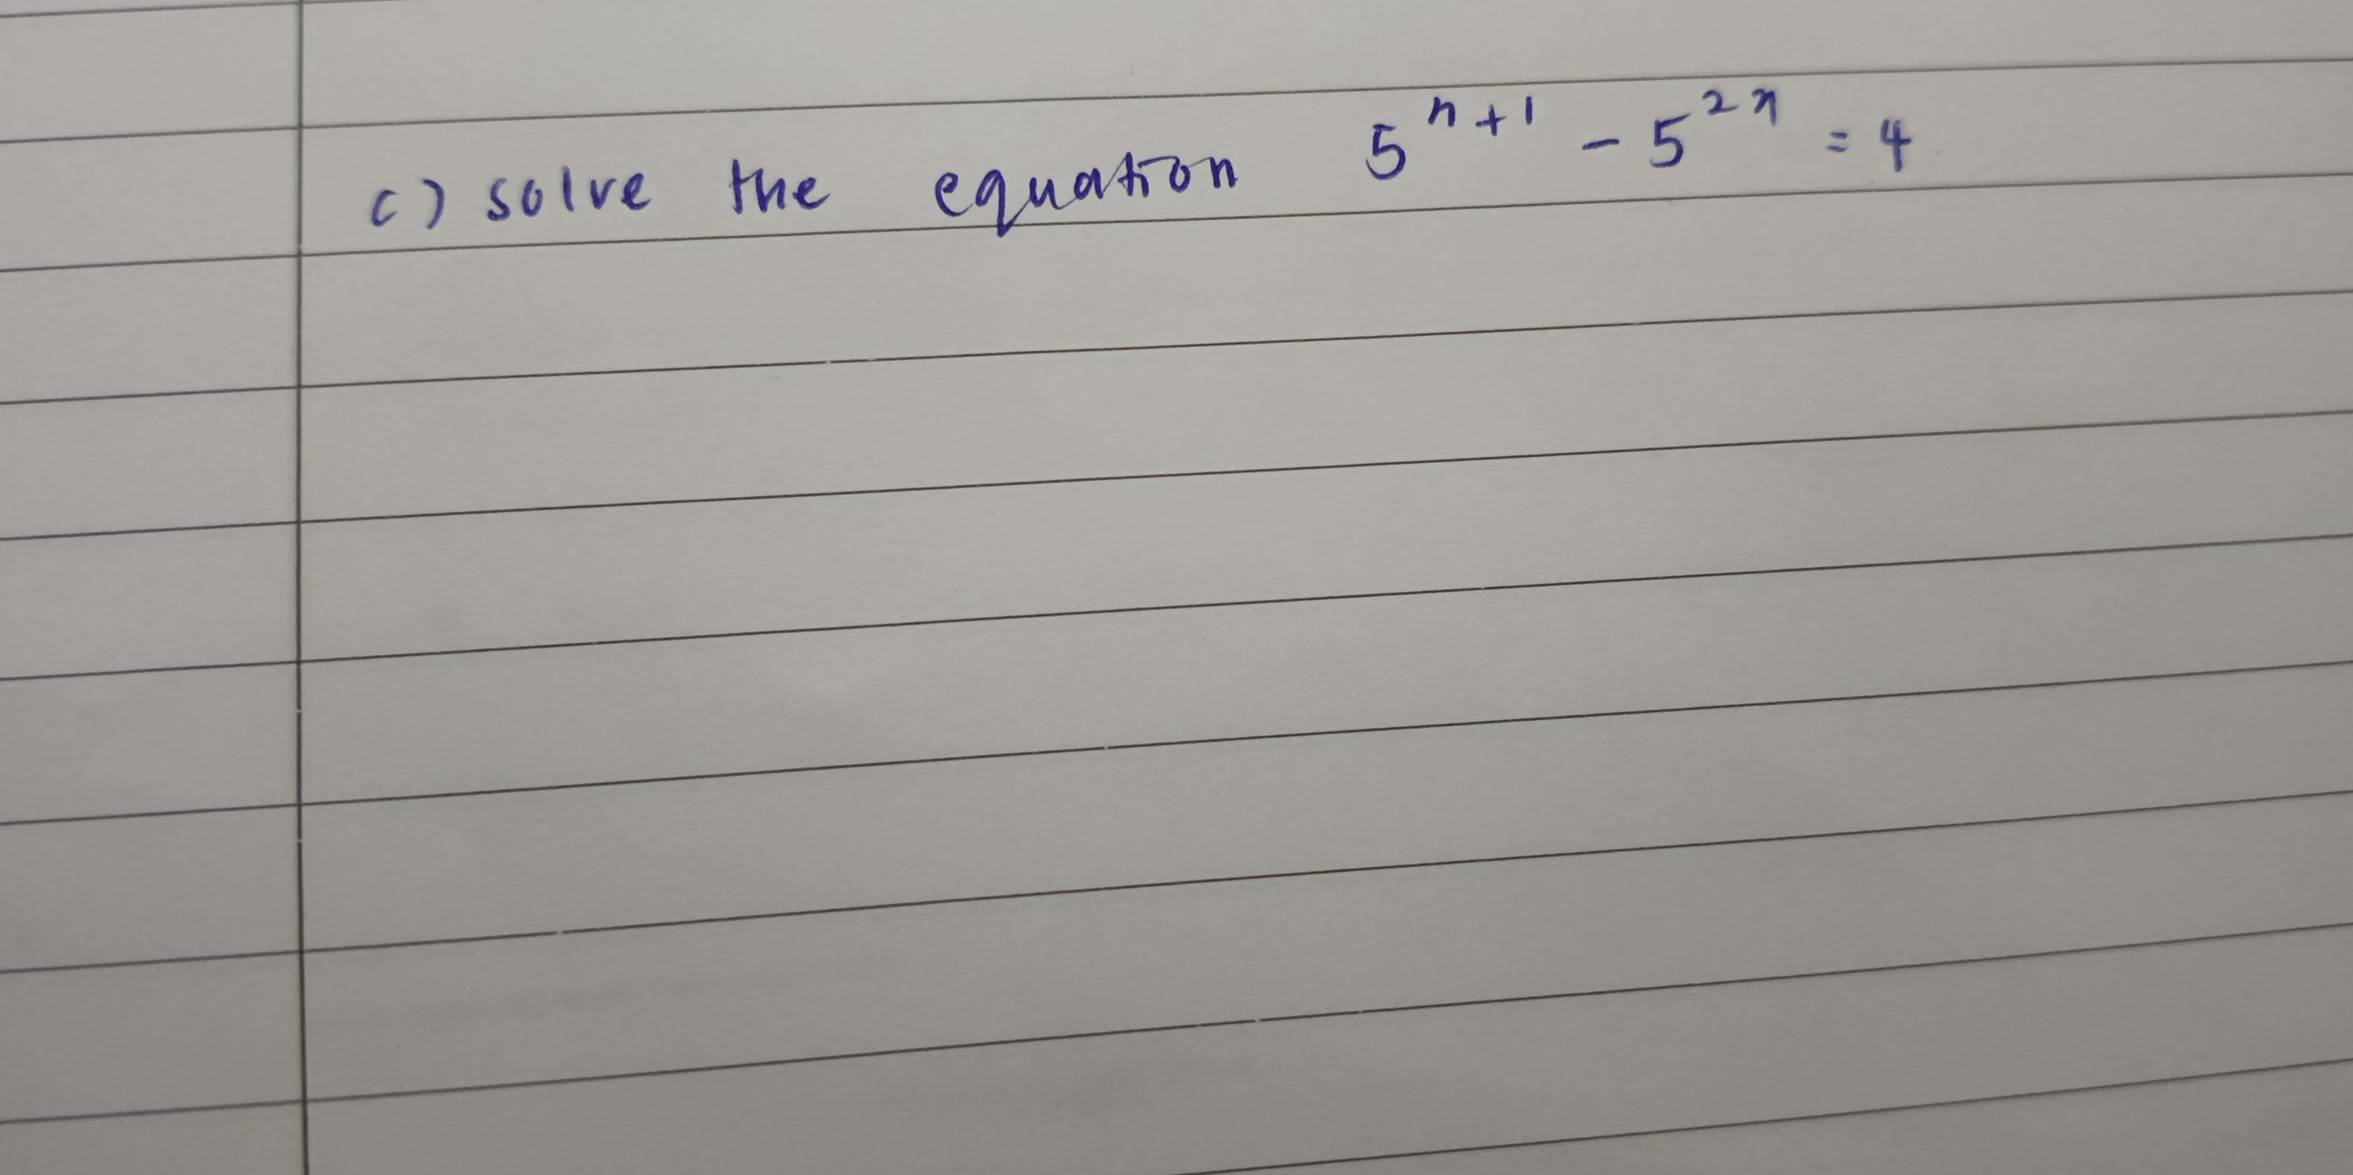 c) solve the equation 5^{x+1} - 5^{2x} = 4